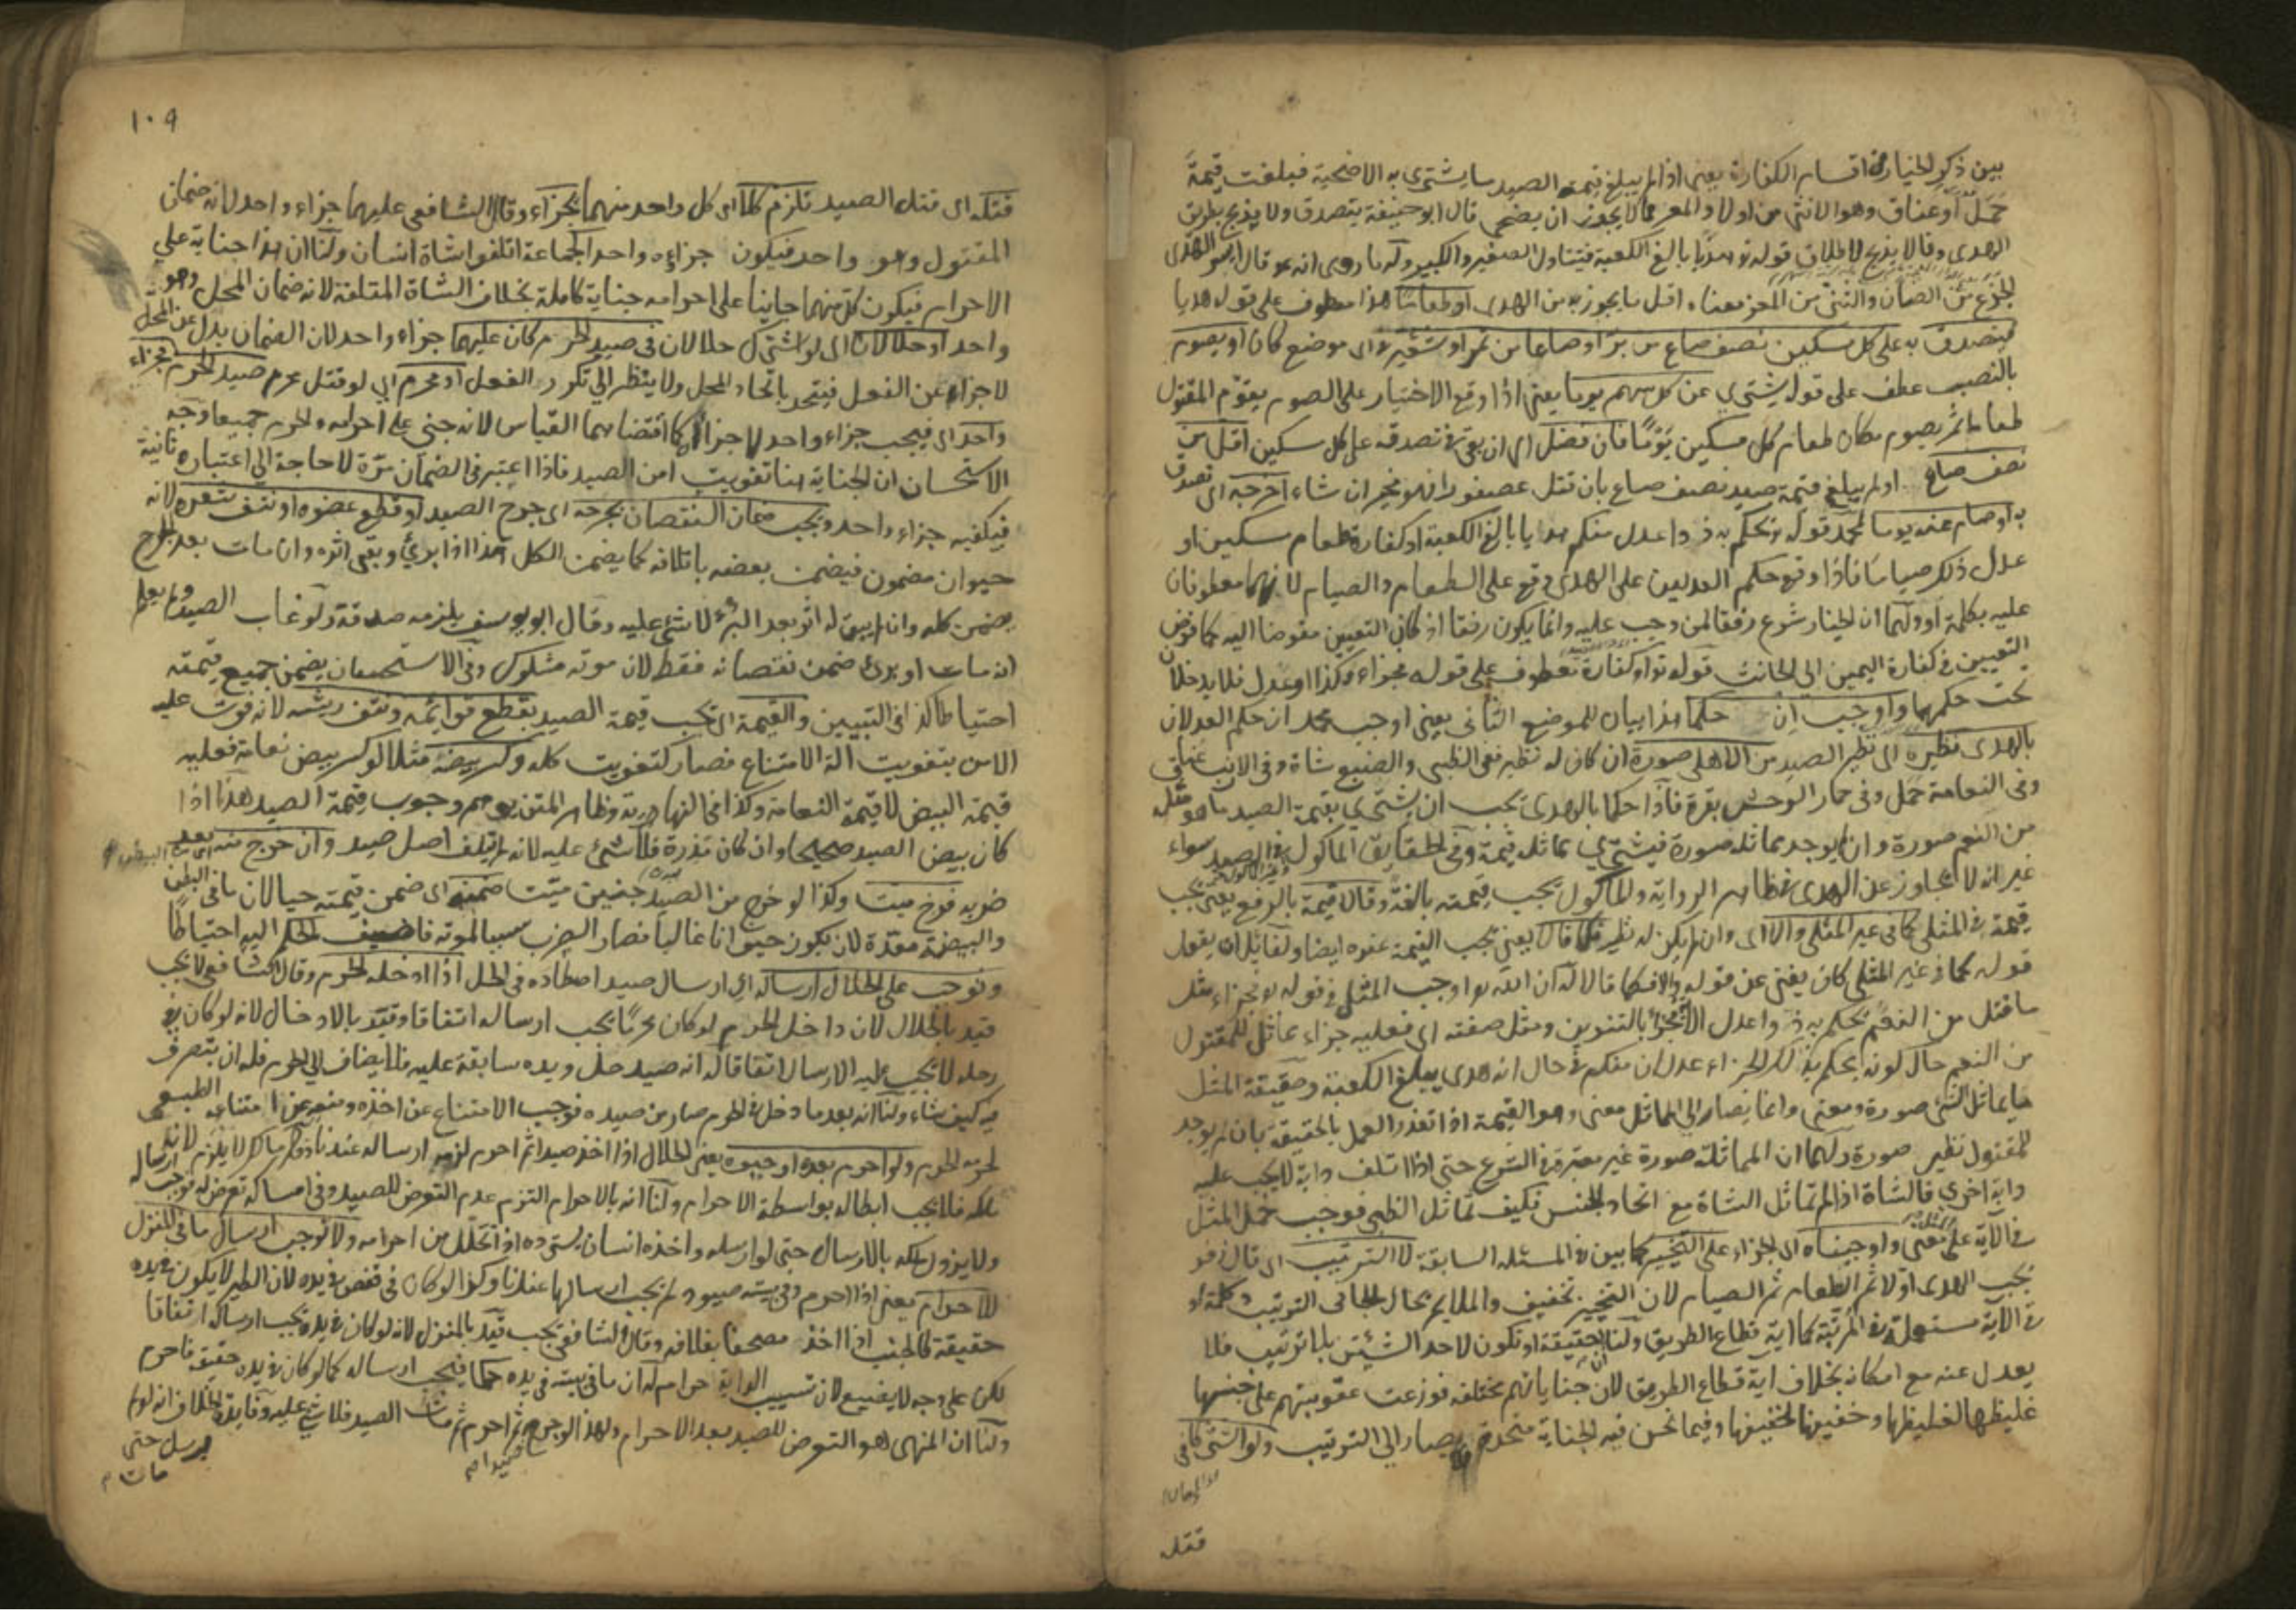 بين ذكر الخيار في اقسام الكفارة يعني اذا لم يبلغ قيمة الصيد ما يشتري به الاضحية فبلغت قيمة
حمل او عناق وهو الانثى من اولاد المعز لا يجوز ان يضحى قال ابو حنيفة يتصدق ولا يذبح بطريق
الهدى وقالا يذبح لاطلاق قوله هديا بالغ الكعبة فيتناول الصغير والكبير وله ما روى انه قال الهدى
الجذع من الضأن والثني من المعز معناه اقل ما يجوز به من الهدى او طعاما هذا معطوف على قوله هديا
فيتصدق به على كل مسكين نصف صاع من بر او صاعا من تمر او شعير في اى موضع كان او يصوم
بالنصب عطف على قوله يشتري عن كل سهم يوما يعني اذا وقع الاختيار على الصوم يقوم المقتول
طعاما ثم يصوم مكان طعام كل مسكين يوما فان فضل اى ان بقى في تصدقه على كل مسكين اقل من
نصف صاع او لم يبلغ قيمة صيد نصف صاع بان قتل عصفورا فهو مخير ان شاء اخرجه اى تصدق
به او صام عنه يوما لمحمد قوله يحكم به ذوا عدل منكم هديا بالغ الكعبة او كفارة طعام مسكين او
عدل ذلك صياما فاذا وقع حكم العدلين على الهدى وقع على الطعام والصيام لانهما معطوفان
عليه بكلمة او ولهما ان الخيار شرع رفقا لمن وجب عليه وانما يكون رفقا اذ كان التعيين مفوضا اليه كما فوض
التعيين في كفارة اليمين الى الحانث قوله او كفارة معطوف على قوله فجزاء وكذا او عدل فلا يدخلان
تحت حكمهما واوجب ان حكما هذا بيان للموضع الثانى يعنى اوجب محمد ان حكم العدلان
بالهدى نظيره اى نظير الصيد من الاهلى صورة ان كان له نظير ففى الظبى والضبع شاة وفى الارنب عناق
وفى النعامة جمل وفى حمار الوحش بقرة فاذا حكما بالهدى يجب ان يشترى بقيمة الصيد ما هو مثله
من النعم صورة وان لم يوجد مماثله صورة فيشترى مماثله قيمة وفى الحقايق المأكول في الصيد سواء
غير انه لا يجاوز عن الهدى في ظاهر الرواية والمأكول يجب قيمته بالغة وقالا قيمة بالرفع يعنى يجب
قيمة في المثلى كما في غير المثلى والا اى وان لم يكن له نظير فكما قالا يعنى يجب القيمة عنده ايضا ولقائل ان يقول
قوله كما في غير المثلى كان يغنى عن قوله والا فكما قالا له ان الله اوجب المثل في قوله فجزاء مثل
ما قتل من النعم يحكم به ذوا عدل الآية فجزاء بالتنوين ومثل صفته اى فعليه جزاء مماثل للمقتول
من النعم حال كونه يحكم بذلك الجزاء عدلان منكم في حال انه هدى يبلغ الكعبة وحقيقة المثل
ما يماثل الشئ صورة ومعنى وانما يصار الى المماثل معنى وهو القيمة اذا تعذر العمل بالحقيقة بان لم يوجد
للمقتول نظير صورة ولهما ان المماثلة صورة غير معتبرة في الشرع حتى اذا اتلف دابة لا يجب عليه
دابة اخرى فالشاة اذا لم تماثل الشاة مع اتحاد الجنس فكيف تماثل الظبى فوجب حمل المثل
في الآية على معنى واوجبناه اى الجزاء على التخيير كما بين في المسئلة السابقة لا الترتيب اى قال زفر
يجب الهدى اولا ثم الطعام ثم الصيام لان التخيير تخفيف والملايم بحال الجانى الترتيب وكلمة او
في الآية مستعملة في المرتبة كما اية قطاع الطريق ولنا ان حقيقة او تكون لاحد الشيئين بلا ترتيب فلا
يعدل عنه مع امكانه بخلاف اية قطاع الطريق لان جناياتهم مختلفة فوزعت عقوبتهم على جنسها
غليظها لغليظها وخفيفها لخفيفها وفيما نحن فيه الجناية متحدة يصار الى الترتيب ولو اشتركا في
قتله
١٠٩
قتله اى قتل الصيد تلزم كلا اى كل واحد منهما الجزاء وقال الشافعى عليهما جزاء واحد لانه ضمان
المقتول وهو واحد فيكون جزاؤه واحدا كجماعة اتلفوا شاة انسان ولنا ان هذا جناية على
الاحرام فيكون كل منهما جانيا على احرامه جناية كاملة بخلاف الشاة المتلفة لانه ضمان المحل وهو
واحد او حلالان اى لو اشترك حلالان في صيد الحرم كان عليهما جزاء واحد لان الضمان بدل عن المحل
لا جزاء عن الفعل فيتحد باتحاد المحل ولا ينظر الى تكرر الفعل او محرم اى لو قتل محرم صيد الحرم فجزاء
واحد اى فيجب جزاء واحد لا جزاآن كما اقتضاهما القياس لانه جنى على احرامه والحرم جميعا وجه
الاستحسان ان الجناية هنا تفويت امن الصيد فاذا اعتبر في الضمان مرة لا حاجة الى اعتباره ثانية
فيكفيه جزاء واحد ويجب ضمان النقصان بجرحه اى جرح الصيد او قطع عضوه او نتف شعره لانه
حيوان مضمون فيضمن بعضه باتلافه كما يضمن الكل هذا اذا برئ وبقى اثره وان مات بعد الجرح
يضمن كله وان لم يبق له اثر بعد البرء لا شئ عليه وقال ابو يوسف يلزمه صدقة ولو غاب الصيد ولم يعلم
انه مات او برئ ضمن نقصانه فقط لان موته مشكوك وفى الاستحسان يضمن جميع قيمته
احتياطا كذا فى التبيين والقيمة اى تجب قيمة الصيد بقطع قوائمه ونتف ريشه لانه فوت عليه
الامن بتفويت آلة الامتناع فصار كتفويت كله وكسر بيضه مثلا لو كسر بيض نعامة فعليه
قيمة البيض لا قيمة النعامة وكذا في النهاية وظاهر المتن يوهم وجوب قيمة الصيد هذا اذا
كان بيض الصيد صحيحا وان كان مذرة فلا شئ عليه لانه لم يتلف اصل صيد وان خرج منه
ضربه فرخ ميت وكذا لو خرج من الصيد جنين ميت ضمنه اى ضمن قيمته حيا لان ما فى البطن
والبيضة معدة لان يكون حيوانا غالبا فصار الضرب سببا لموته فاضيف الحكم اليه احتياطا
ونوجب على الحلال ارساله اى ارسال صيد اصطاده فى الحل اذا ادخله الحرم وقال الشافعى لا يجب
قيد بالحلال لان داخل الحرم لو كان محرما يجب ارساله اتفاقا وقيد بالادخال لانه لو كان في
رحله لا يجب عليه الارسال اتفاقا له انه صيد حل ويده سابقة عليه فلا يضاف الى الحرم فله ان يتصرف
فيه كيف شاء ولنا انه بعد ما دخل في الحرم صار من صيده فوجب الامتناع عن اخذه
لحرمة الحرم ولو احرم بعده اوجبوه يعنى الحلال اذا اخذ صيدا ثم احرم لزمه ارساله عندنا وقال مالك لا يلزم لانه
ملكه فلا يجب ابطاله بواسطة الاحرام ولنا انه بالاحرام التزم عدم التعرض للصيد وفى امساكه تعرض له فوجب ارساله
ولا يزول ملكه بالارسال حتى لو ارسله واخذه انسان يسترده اذا تحلل من احرامه ولا نوجب ارسال ما فى المنزل
للاحرام يعنى اذا احرم وفى بيته صيود لم يجب ارسالها عندنا وكذا لو كان فى قفص في يده لان الطير لا يكون في يده
حقيقة كالجنب اذا اخذ مصحفا بغلافه وقال الشافعى يجب قيد بالمنزل لانه لو كان في يده يجب ارساله اتفاقا
لكن على وجه لا يضيع لان تسييب الدابة حرام له ان ما فى بيته فى يده حكما فيجب ارساله كما لو كان في يده حقيقة فاحرم
ولنا ان المنهى هو التعرض للصيد بعد الاحرام ولهذا لو جرح صيدا ثم احرم ثم مات الصيد فلا شئ عليه وفايدة الخلاف انه لو لم
يرسل حتى
مات